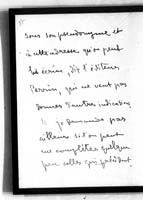 sous son pseudonyme et
à cette adresse qu'on peut
lui écrire, dit l'éditeur
Perrin, qui ne veut pas
donner d'autres indications
je demande pas
ailleurs si l'on peut
me compléter quelque
peu celles qui précèdent